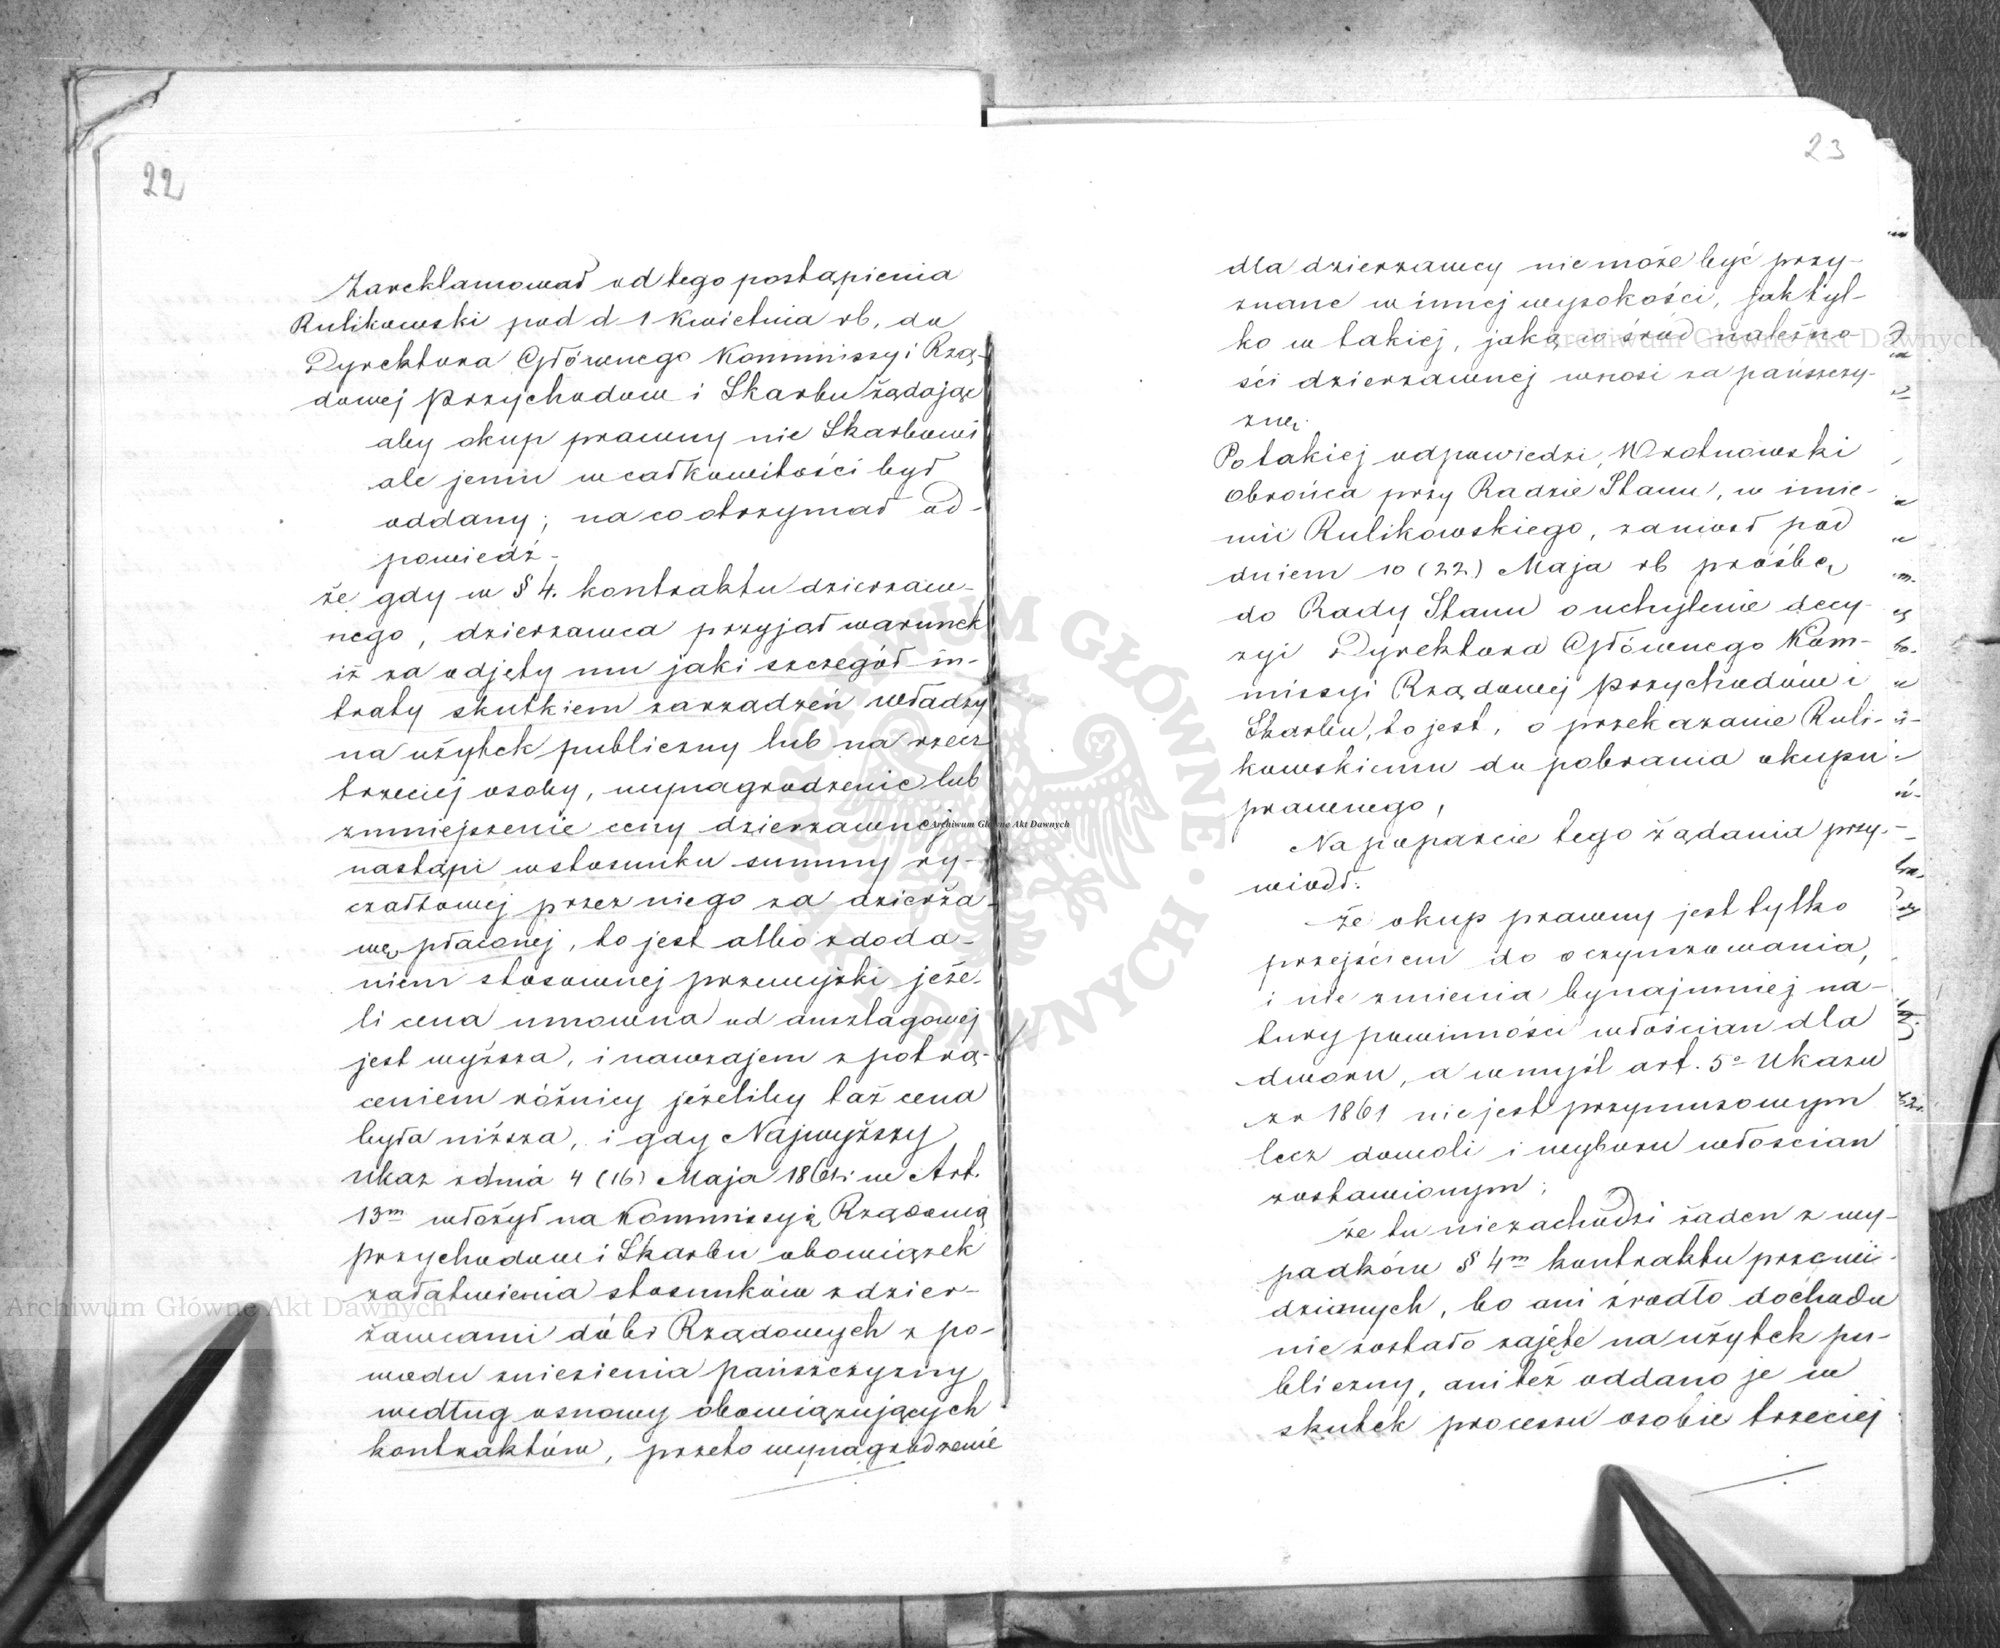 22
Zareklamował od tego postąpienia
Rulikowski pod d 1 Kwietnia rb. do
Dyrektora Głównego Kommissyi Rzą-
dowej Przychodów i Skarbu żądając
aby okup prawny nie Skarbowi
ale jemu w całkowitości był
oddany; na co otrzymał od-
powiedź -
że gdy w § 4. kontraktu dzierzaw-
nego, dzierzawca przyjął warunek
iż za odjęty mu jaki szczegół in-
traty skutkiem zarządzeń władzy
na użytek publiczny lub na rzecz
trzeciej osoby, wynagrodzenie lub
zmniejszenie ceny dzierzawnej
nastąpi w stosunku summy ry-
czałtowej przez niego za dzierża-
wę płaconej, to jest albo z doda-
niem stosownej przewyżki jeże-
li cena umowna od anszlagowej
jest wyższa, i nawzajem z potrą-
ceniem różnicy jeżeliby taż cena
była niższa, i gdy Najwyższy
Ukaz z dnia 4 (16) Maja 1861 r. w Art.
13m włożył na Kommissyją Rządową
Przychodów i Skarbu obowiązek
załatwienia stosunków z dzier-
żawcami dóbr Rządowych z po-
wodu zniesienia pańszczyzny
według osnowy obowiązujących
kontraktów, przeto wynagrodzenie
23
dla dzierzawcy nie może być przy-
znane w innej wysokości, jak tyl-
ko w takiej, jaką wśród należno-
ści dzierzawnej wnosi za pańszczy-
znę.
Po takiej odpowiedzi, Wrotnowski
Obrońca przy Radzie Stanu, w imie-
niu Rulikowskiego, zaniosł pod
dniem 10 (22) Maja rb prośbę
do Rady Stanu o uchylenie decy-
zyi Dyrektora Głównego Kom-
missyi Rządowej Przychodów i
Skarbu, to jest, o przekazanie Ruli-
kowskiemu do pobrania okupu
prawnego,
Na poparcie tego żądania przy-
wiodł:
że okup prawny jest tylko
przejściem do oczynszowania,
i nie zmienia bynajmniej na-
tury powinności włościan dla
dworu, a w myśl art. 5o Ukazu
z r 1861 nie jest przymusowym
lecz dowoli i wyboru włościan
zostawionym;
że tu niezachodzi żaden z wy-
padków § 4m kontraktu przewi-
dzianych, bo ani źrodło dochodu
nie zostało zajęte na użytek pu-
bliczny, ani też oddano je w
skutek processu osobie trzeciej
Archiwum Główne Akt Dawnych
© Archiwum Główne Akt Dawnych
Archiwum Główne Akt Dawnych
ARCHIWUM GŁÓWNE AKT DAWNYCH